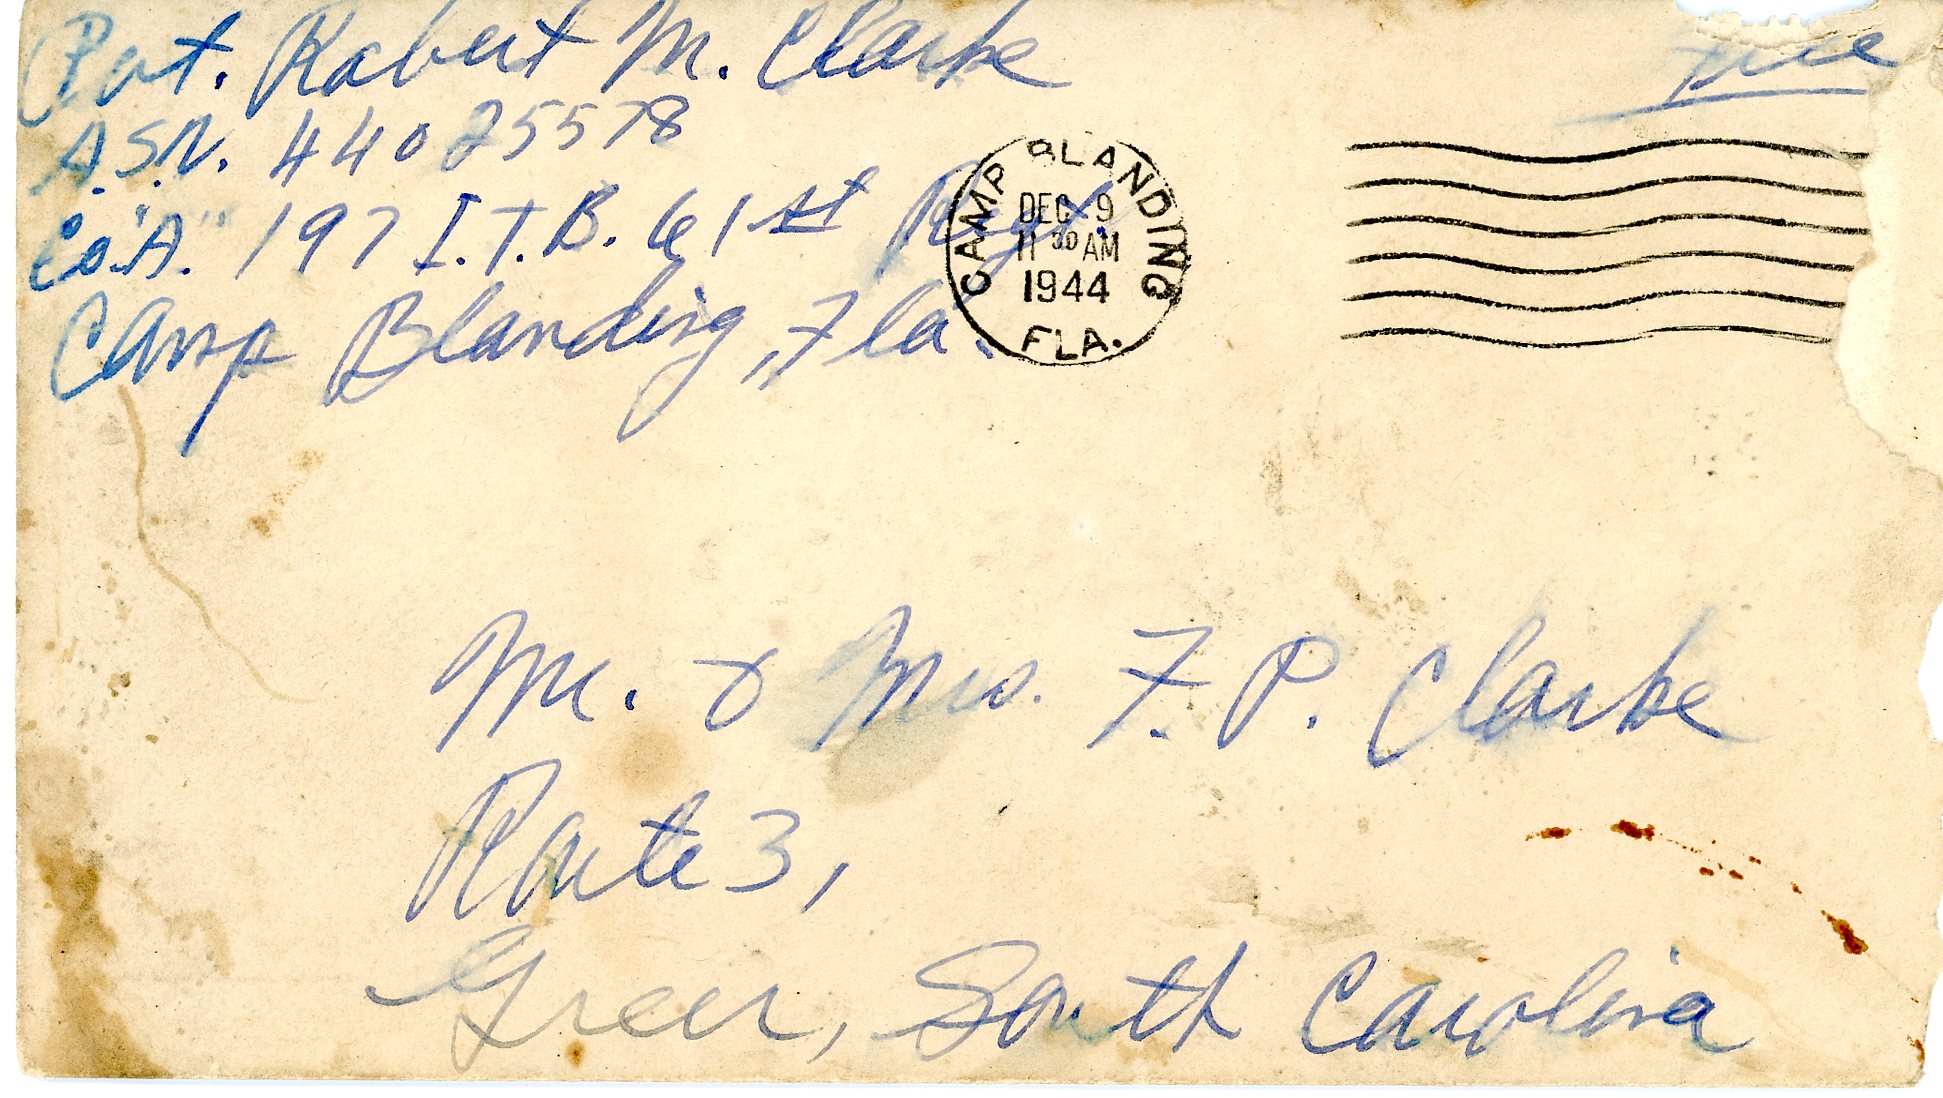 Pvt. Robert M. Clarke
A.S.N. 44025578
Co "A". 197 I.T.B. 61st Regt.
Camp Blanding, Fla.
Free
CAMP BLANDING
DEC 9
11 30 AM
1944
FLA.
Mr. & Mrs. F. P. Clarke
Route 3,
Greer, South Carolina